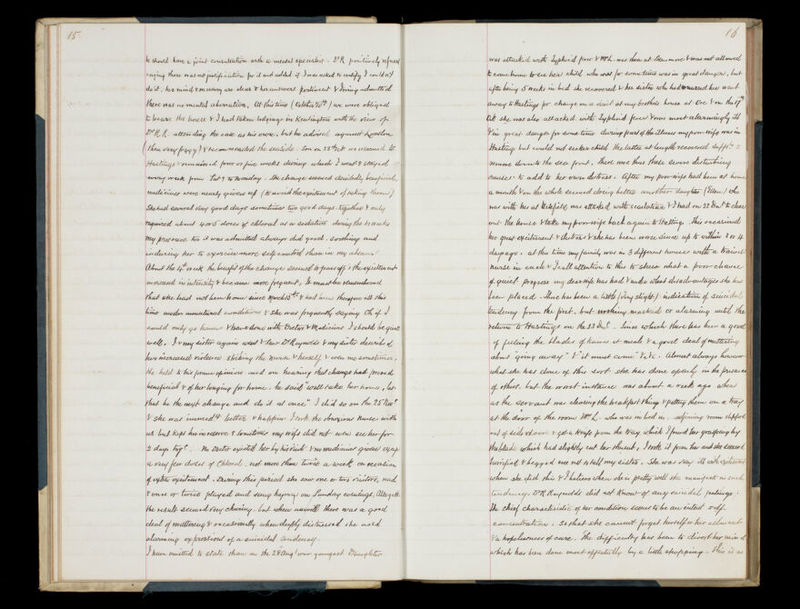 15
he should have a joint consultation with a mental specialist. Dr R positively refused
urging there was no justification for it and added if I was asked to certify I couldn't
do it, her mind & memory are clear & her answers pertinent &
there was no mental aberration. At this time (October 20th) we were obliged
to leave the house & I had taken lodgings in Kensington with the view of
Dr R. R. attending the case as his own, but he advised against London
(then very foggy) & recommended the seaside. So on 28th Oct we removed to
Hastings & remained four or five weeks during which I went & stayed
every week from Sat to Monday. The change seemed decidedly beneficial,
medicines were nearly given up (to avoid the excitement of taking them)
She had several day good days sometimes two good days together & only
required about 4 or 5 doses of chloral as a sedative during the 4 weeks
My presence too it was admitted always did good, soothing and
inducing her to exercise more self control than in my absence.
About the 4th week the benefit of the change seemed to pass off & the excitement
increased in intensity & became more frequent. It must be remembered
that she had not been home since March 13th & had been therefore all this
time under unnatural conditions & she was frequently saying Oh if I
could only go home & be alone with Doctor & Medicines I should be quite
well. I & my sister again went & saw Dr Reynolds & my sister described
her increased violence striking the Nurse & herself & even me sometimes.
He held to his former opinions and on hearing that change had proved
beneficial & of her longing for home, he said "well take her home, let
that be the next change and do it at once" I did so on the 25 Nov
& she was increased better & happier. I took the
but kept her in reserve & sometimes my wife did not even see her for
2 days tog. No Doctor visited her by his wish & no medicines given except
a very few doses of Chloral, not more than twice a week on occasion
of extra excitement. During this period she saw one or two visitors, read
& once or twice played and sang hymns on Sunday evenings. Altogether
the result seemed very cheering, but when unwell there was a good
deal of muttering & occasionally when deeply distressed she used
alarming expressions of a suicidal tendency.
I have omitted to state than on the 28 Aug our youngest Daughter
16
was attacked with typhoid fever & Mrs L. was then at & was not allowed
to come home to see her child who was for some time was in great danger, but
after being 5 weeks in bed she recovered & her sister who had nursed her went
away to Hastings for change on a visit at my brothers house at Ore & on the 17th
Oct she was also attacked with typhoid fever & was most alarmingly ill
& in great danger for some time during part of the illness my poor wife was in
Hastings but could not see her child she latter at length recovered
remove down to the sea front, there were thus these severe disturbing
causes to add to her own distress. After my poor wife had been at home
a month & on the whole seemed doing better another daughter (Ellen) who
was with her at was attacked with scarlatina & I had on 22 Dec to clear
out the house & take my poor wife back again to Hastings. This occasioned
her great excitement & distress & she has been worse since up to within 3 or 4
days ago. At this time my family was in 3 different houses with a trained
nurse in each & I call attention to this to shew what a poor chance
of quiet progress my dear wife has had & under what disadvantages she has
been placed. There has been a little (very slight) indication of suicidal
tendency from the first, but nothing marked or alarming until the
return to Hastings on the 22 Decr. Since which there has been a good
of feeling the blades of knives at meals & a good deal of muttering
about "going away" & "it must come" &c &c. Almost always however
what she has done of this sort she has done openly in the presence
of others, but the worst instance was about a week ago when
as the servant was clearing the breakfast things & putting them on a tray
at the door of the room Mrs L. who was in bed in adjoining room slipped
out of side door & got a knife from the tray which I found her grasping by
the blade which had slightly cut her , I took it from her and she seemed
terrified & begged me not to tell my sister. She was very ill with excitement
when she did this & I believe when she is pretty well she manifests no such
tendency. Dr R Reynolds did not know of any suicidal feelings.
The chief characteristic of her condition seems to be an extra self-
concentration, so that she cannot forget herself or her ailments
& a hopelessness of cure. The difficulty has been to divert her mind
which has been done most effectually by a little shopping. This is as